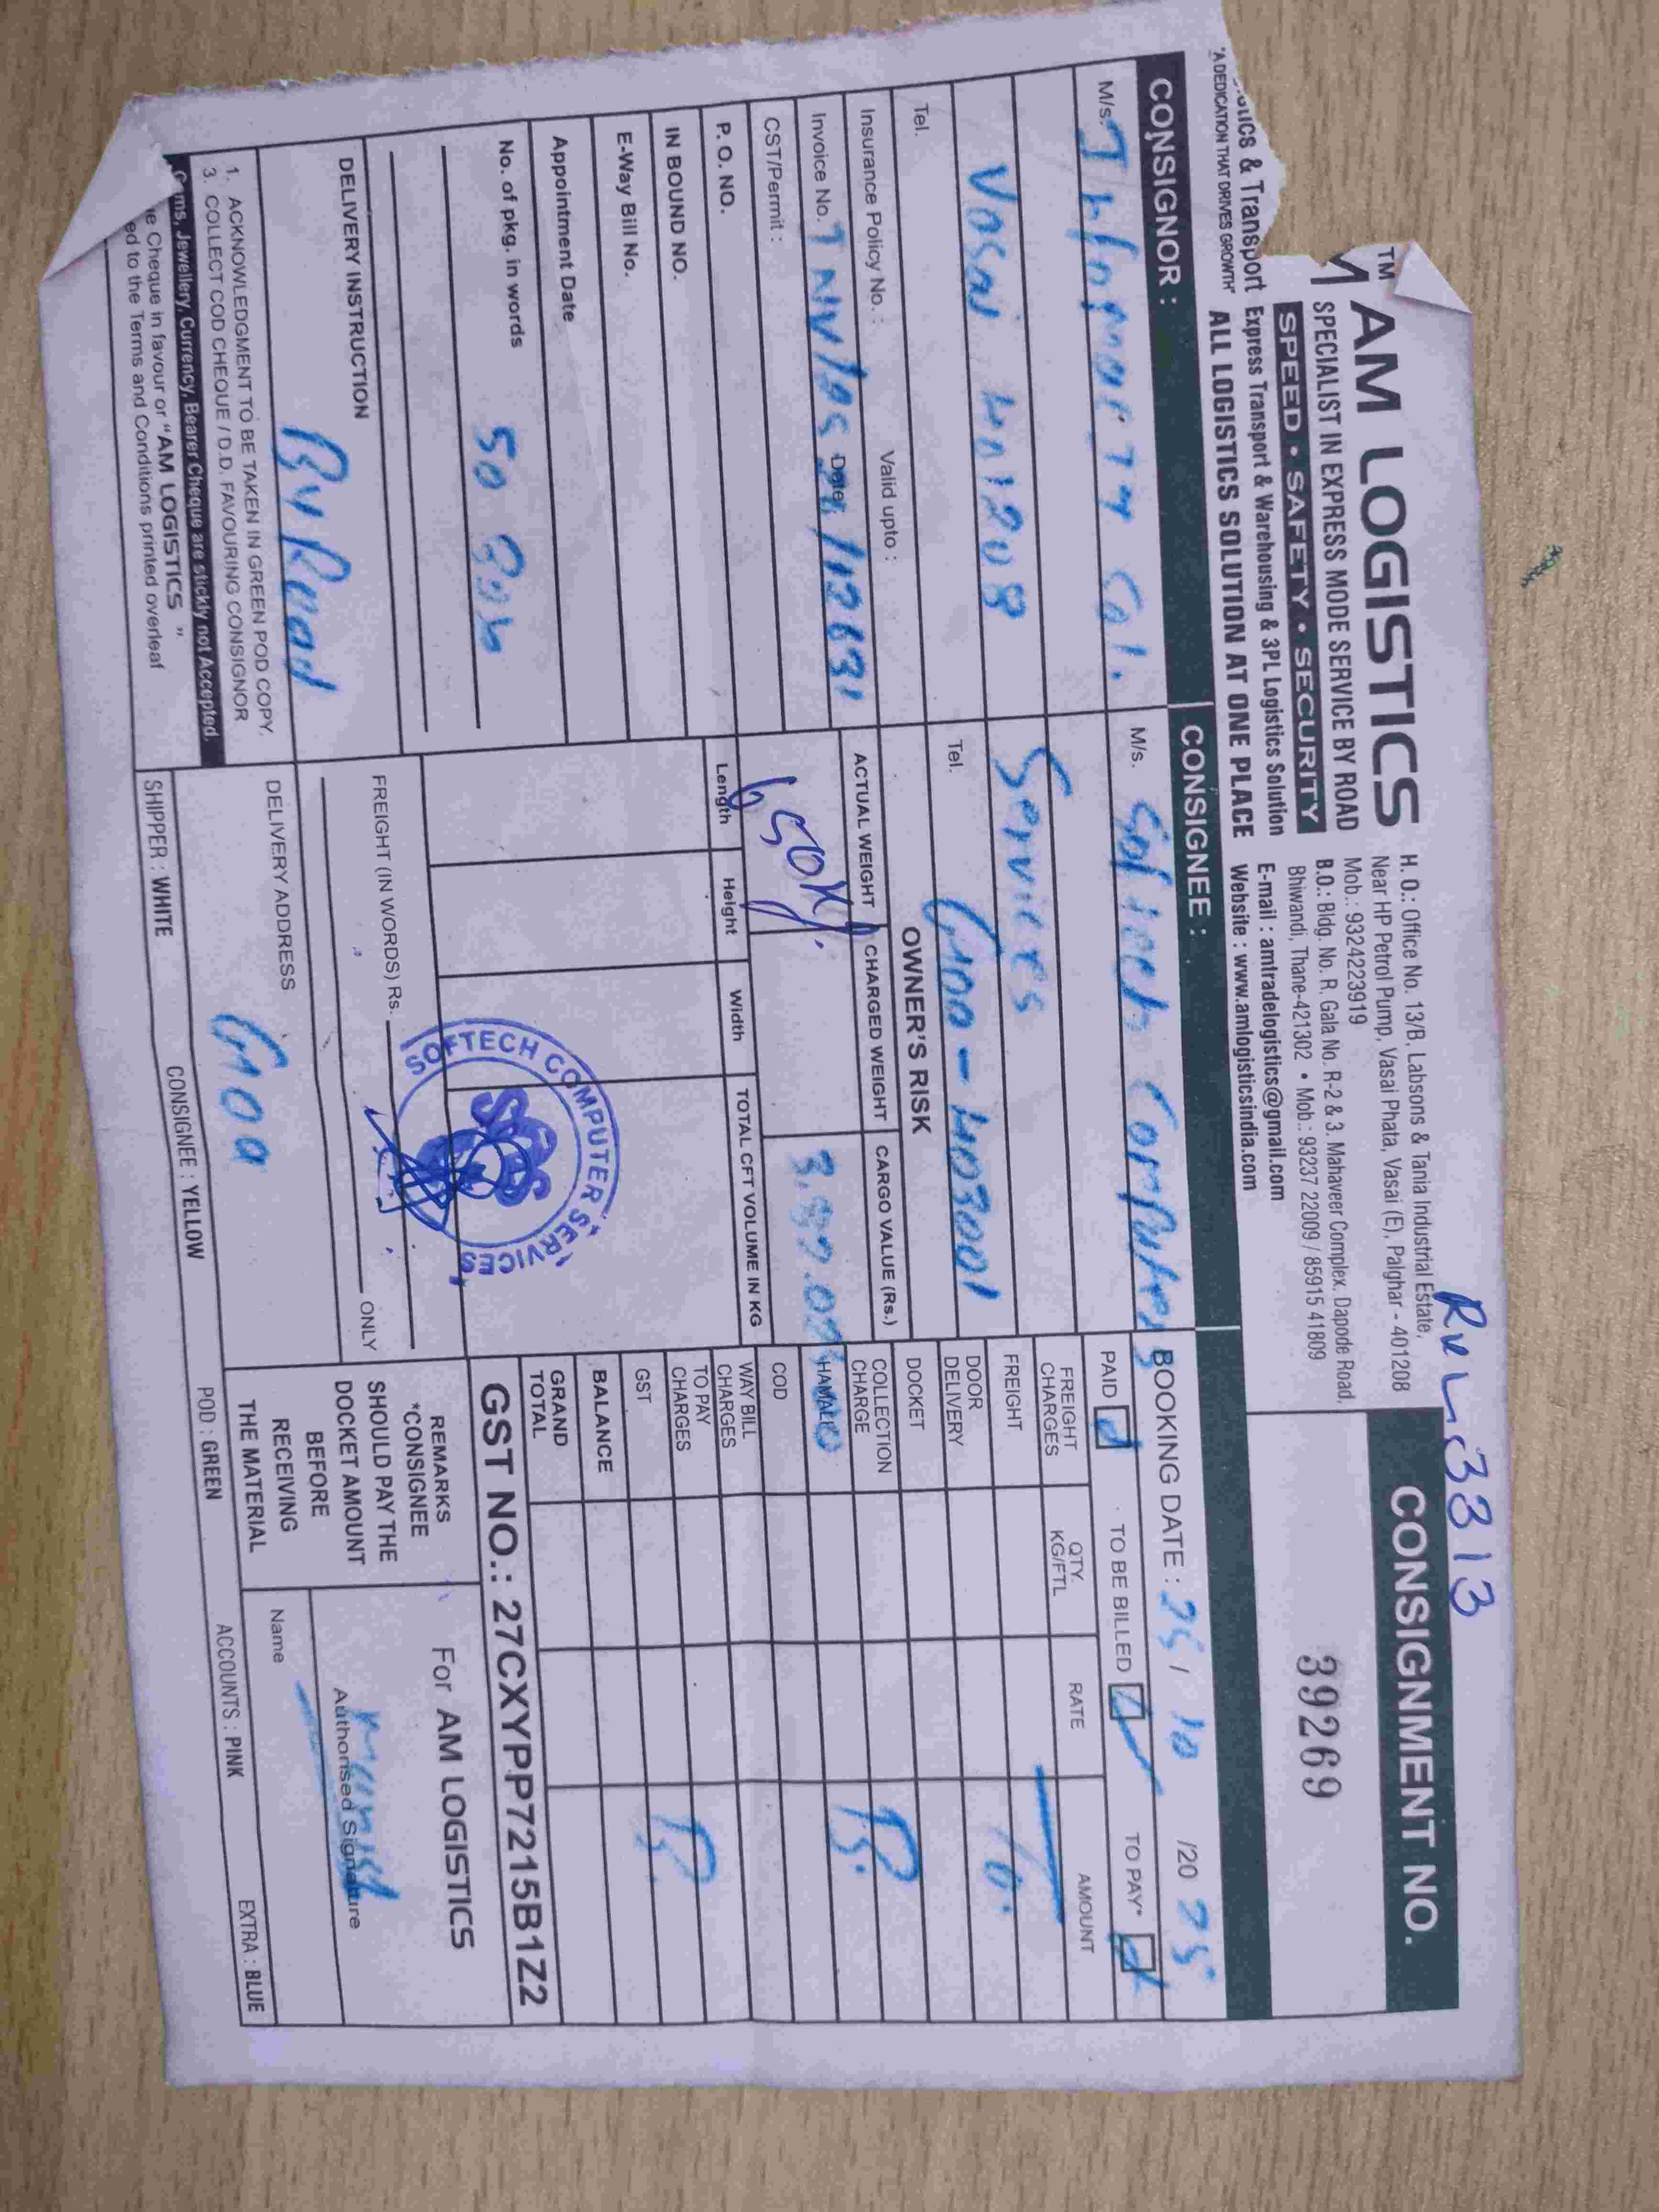 Rev - 3313
TM
AM LOGISTICS
SPECIALIST IN EXPRESS MODE SERVICE BY ROAD
SPEED • SAFETY • SECURITY
& Transport Express Transport & Warehousing & 3PL Logistics Solution
"A DEDICATION THAT DRIVES GROWTH" ALL LOGISTICS SOLUTION AT ONE PLACE
H. O.: Office No. 13/B, Labsons & Tania Industrial Estate,
Near HP Petrol Pump, Vasai Phata, Vasai (E), Palghar - 401208
Mob.: 9324223919
B.O.: Bldg. No. R. Gala No. R-2 & 3. Mahaveer Complex. Dapode Road,
Bhiwandi, Thane-421302 • Mob.: 93237 22009 / 85915 41809
E-mail : amtradelogistics@gmail.com
Website : www.amlogisticsindia.com
CONSIGNMENT NO.
39269
CONSIGNOR :
M/s.
Vasai 401208
Tel.
Insurance Policy No. : Valid upto :
Invoice No. Date
CST/Permit :
P. O. NO.
IN BOUND NO.
E-Way Bill No.
Appointment Date
No. of pkg. in words 50 Box
DELIVERY INSTRUCTION
By Road
1. ACKNOWLEDGMENT TO BE TAKEN IN GREEN POD COPY.
3. COLLECT COD CHEQUE / D.D. FAVOURING CONSIGNOR
Jewellery, Currency, Bearer Cheque are stickly not Accepted.
Cheque in favour or "AM LOGISTICS "
ed to the Terms and Conditions printed overleaf
CONSIGNEE :
M/s. Softech Computer
Services
Tel. Goa - 403001
OWNER'S RISK
ACTUAL WEIGHT CHARGED WEIGHT CARGO VALUE (Rs.)
650Kg.
Length Height Width TOTAL CFT VOLUME IN KG
SOFTECH COMPUTER SERVICES
SCS
FREIGHT (IN WORDS) Rs. ONLY
DELIVERY ADDRESS
Goa
BOOKING DATE : 25/10 /20 25
PAID TO BE BILLED TO PAY*
FREIGHT CHARGES QTY. KG/FTL RATE AMOUNT
FREIGHT
DOOR DELIVERY
DOCKET
COLLECTION CHARGE
HAMALI
COD
WAY BILL CHARGES
TO PAY CHARGES
GST
BALANCE
GRAND TOTAL
GST NO.: 27CXYPP7215B1Z2
REMARKS
*CONSIGNEE
SHOULD PAY THE
DOCKET AMOUNT
BEFORE
RECEIVING
THE MATERIAL
For AM LOGISTICS
Authorised Signature
Name
SHIPPER : WHITE CONSIGNEE : YELLOW POD : GREEN ACCOUNTS : PINK EXTRA : BLUE